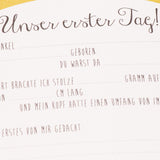 Unser erster Tag!
NKEL
GEBOREN
DU WARST DA
RT BRACHTE ICH STOLZE GRAMM AUF
CM LANG
UND MEIN KOPF HATTE EINEN UMFANG VON
ERSTES VON MIR GEDACHT